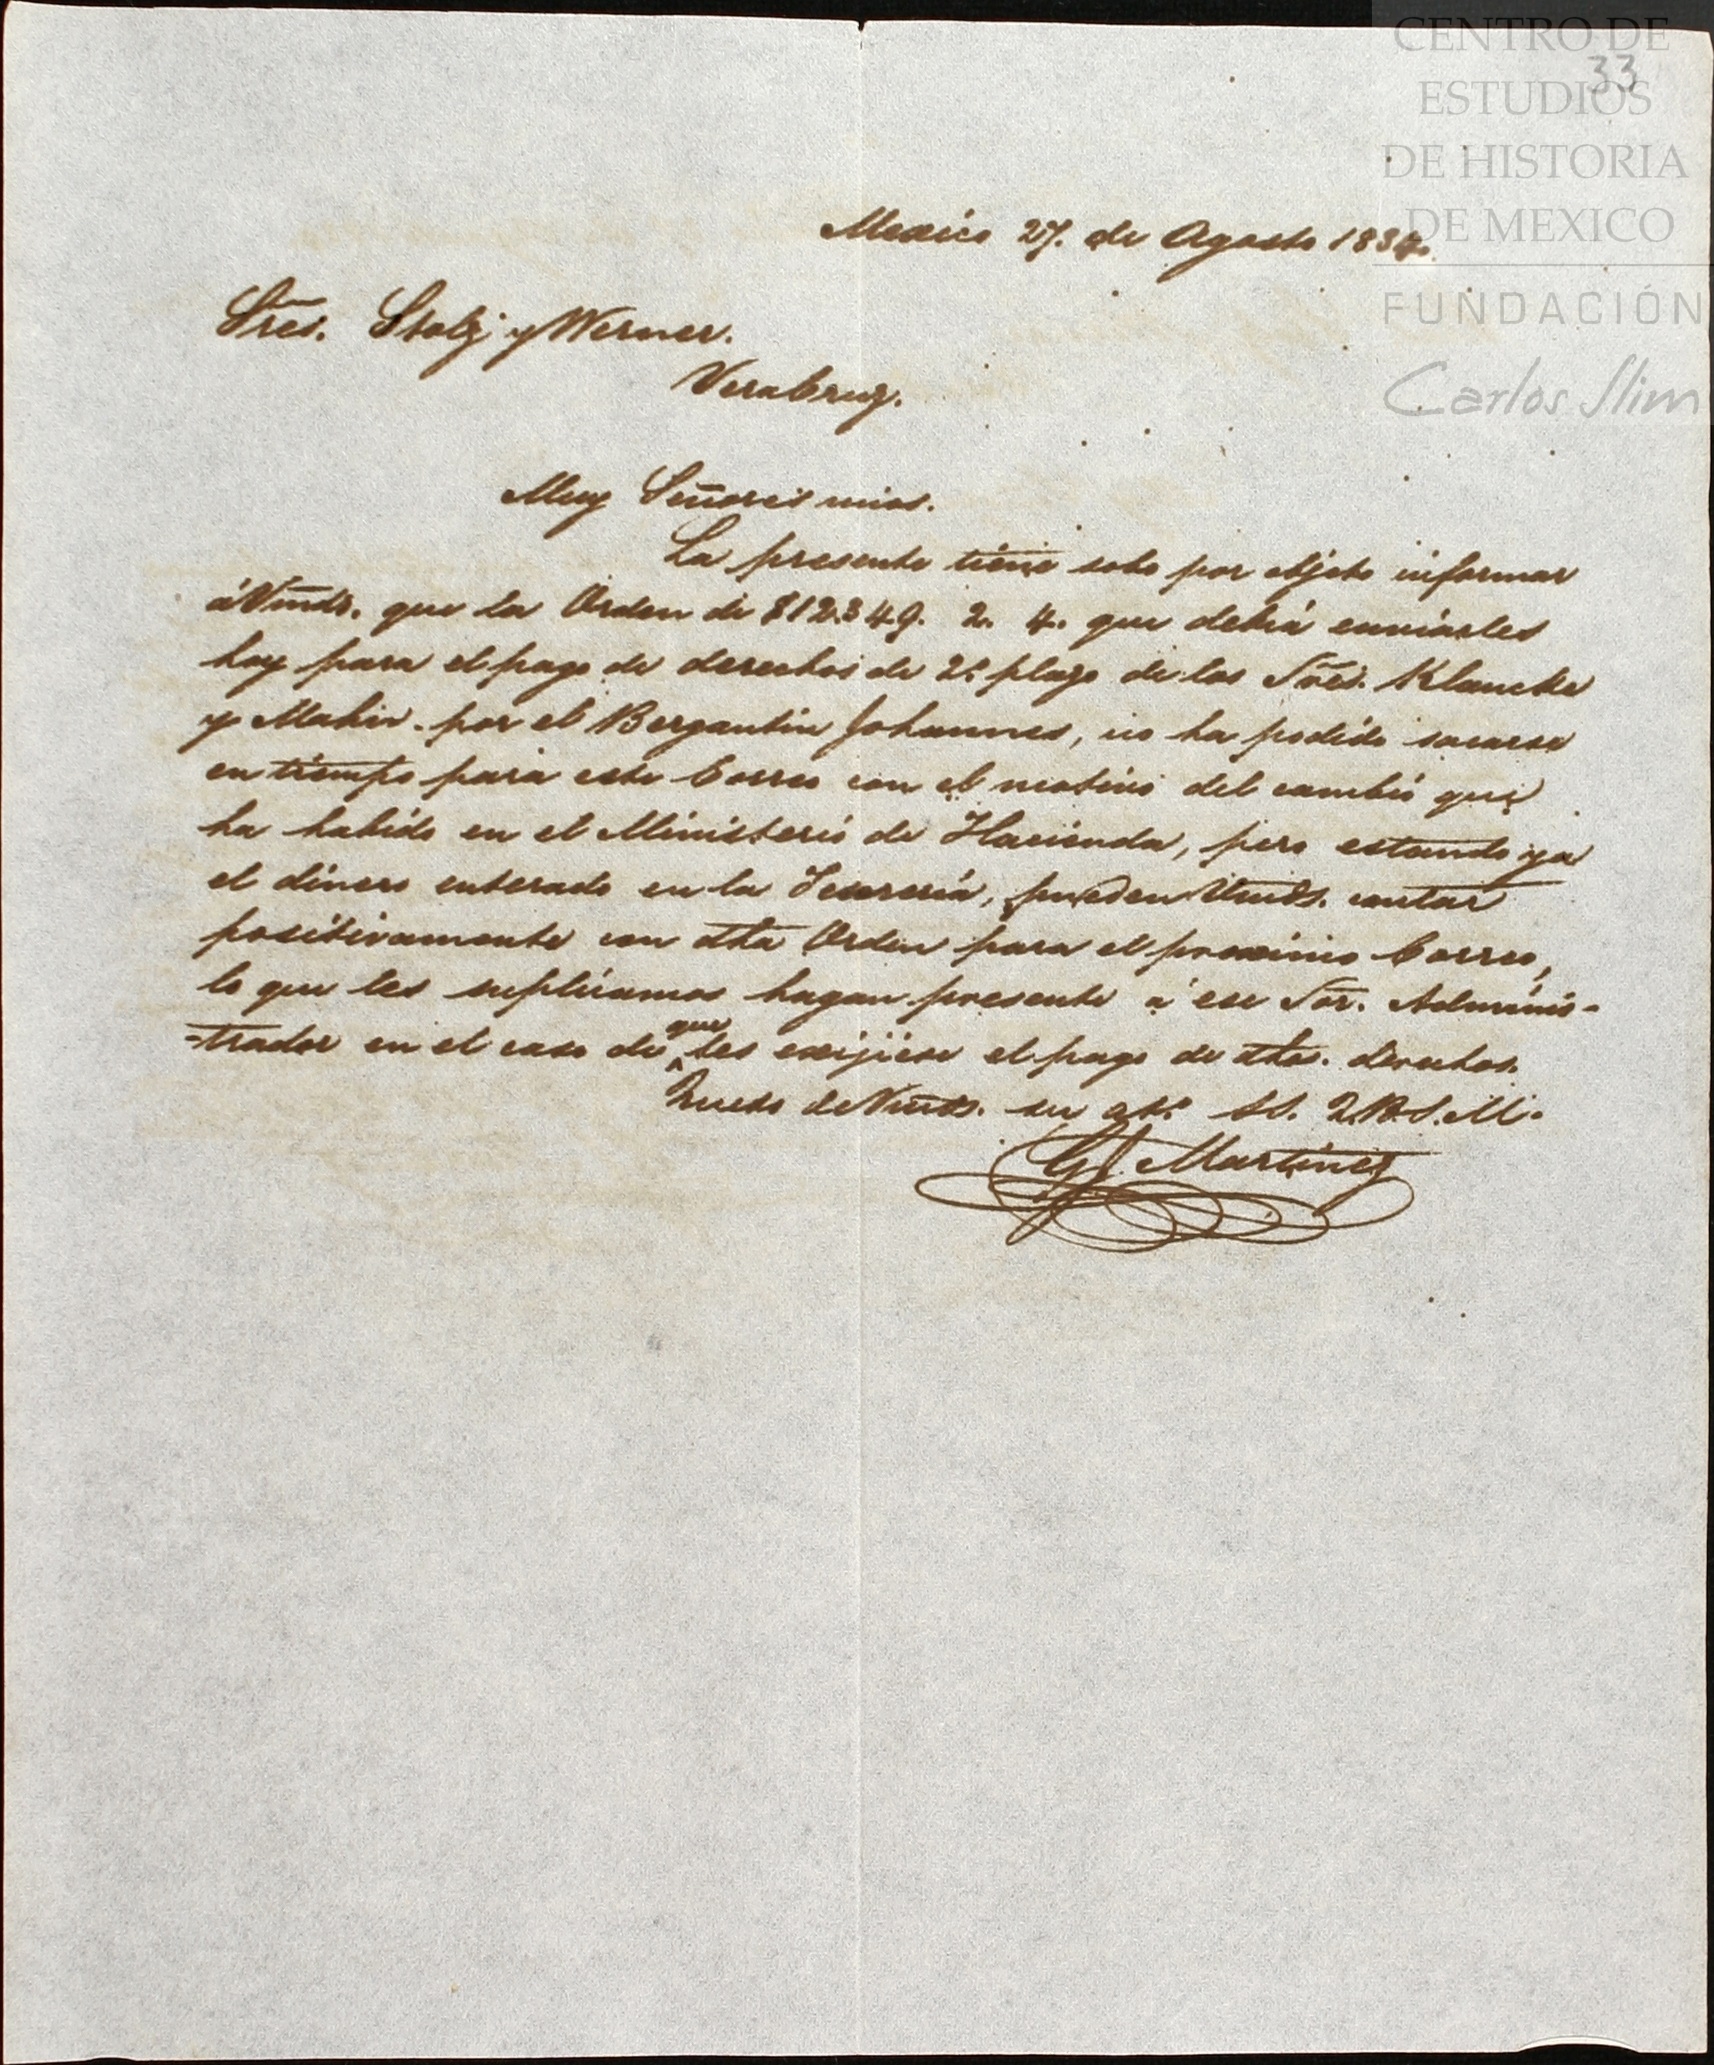 CENTRO DE
ESTUDIOS
DE HISTORIA
DE MEXICO
FUNDACIÓN
Carlos Slim
33
Mexico 27. de Agosto 1834.
Sres. Stolz y Werner.
VeraCruz.
Muy Señores mios.
La presente tiene solo por objeto informar
á Vmds. que la Orden de $12.349. 2. 4. que debiá enviarles
hoy para el pago de derechos de 2º plazo de los Sres. Klancke
y Mahir por el Bergantin Johannes, no ha podido sacarse
en tiempo para este Correo con el motivo del cambio que
ha habido en el Ministerio de Hacienda, pero estando ya
el dinero enterado en la Tesoreria, pueden Vmds. contar
positivamente con dha Orden para el proximo Correo,
lo que les suplicamos hagan presente á ese Sor. Adminis-
-trador en el caso de que les exijiese el pago de dhos. derechos.
Quedo de Vmds. su at.º SS. Q.B.S.M.
G. Martinez